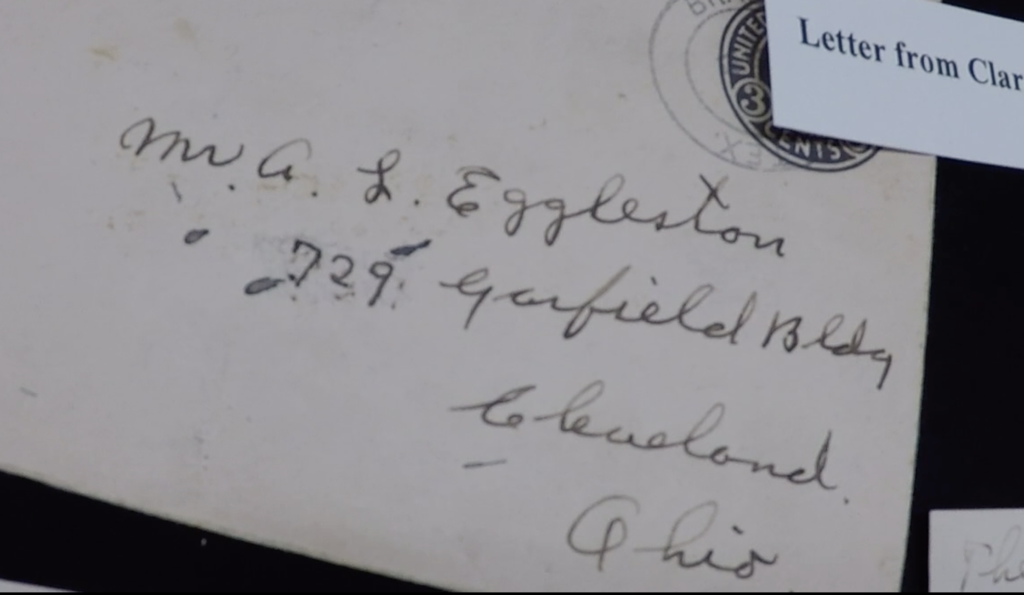 Letter from Clar
UNITED
3
CENTS
TEX.
Mr. A. L. Eggleston
729 Garfield Bldg
Cleveland.
Ohio